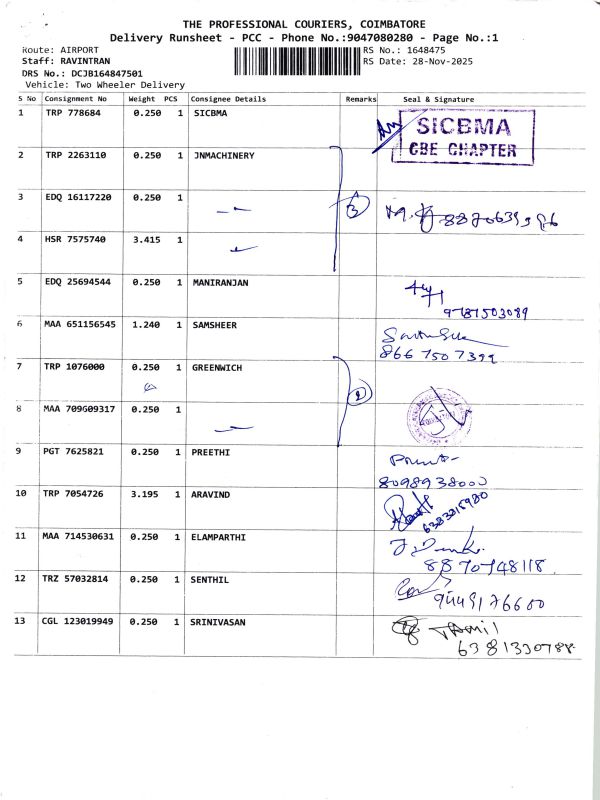 THE PROFESSIONAL COURIERS, COIMBATORE
Delivery Runsheet - PCC - Phone No.:9047080280 - Page No.:1
Route: AIRPORT RS No.: 1648475
Staff: RAVINTRAN RS Date: 28-Nov-2025
DRS No.: DCJB164847501
Vehicle: Two Wheeler Delivery
S No Consignment No Weight PCS Consignee Details Remarks Seal & Signature
1 TRP 778684 0.250 1 SICBMA SICBMA
CBE CHAPTER
2 TRP 2263110 0.250 1 JNMACHINERY
3 EDQ 16117220 0.250 1 3
4 HSR 7575740 3.415 1
5 EDQ 25694544 0.250 1 MANIRANJAN
9787503089
6 MAA 651156545 1.240 1 SAMSHEER
866 7507399
7 TRP 1076000 0.250 1 GREENWICH 2
8 MAA 709609317 0.250 1
9 PGT 7625821 0.250 1 PREETHI
8098938000
10 TRP 7054726 3.195 1 ARAVIND
6383215980
11 MAA 714530631 0.250 1 ELAMPARTHI
8870748118
12 TRZ 57032814 0.250 1 SENTHIL
13 CGL 123019949 0.250 1 SRINIVASAN Tamil
6381330788